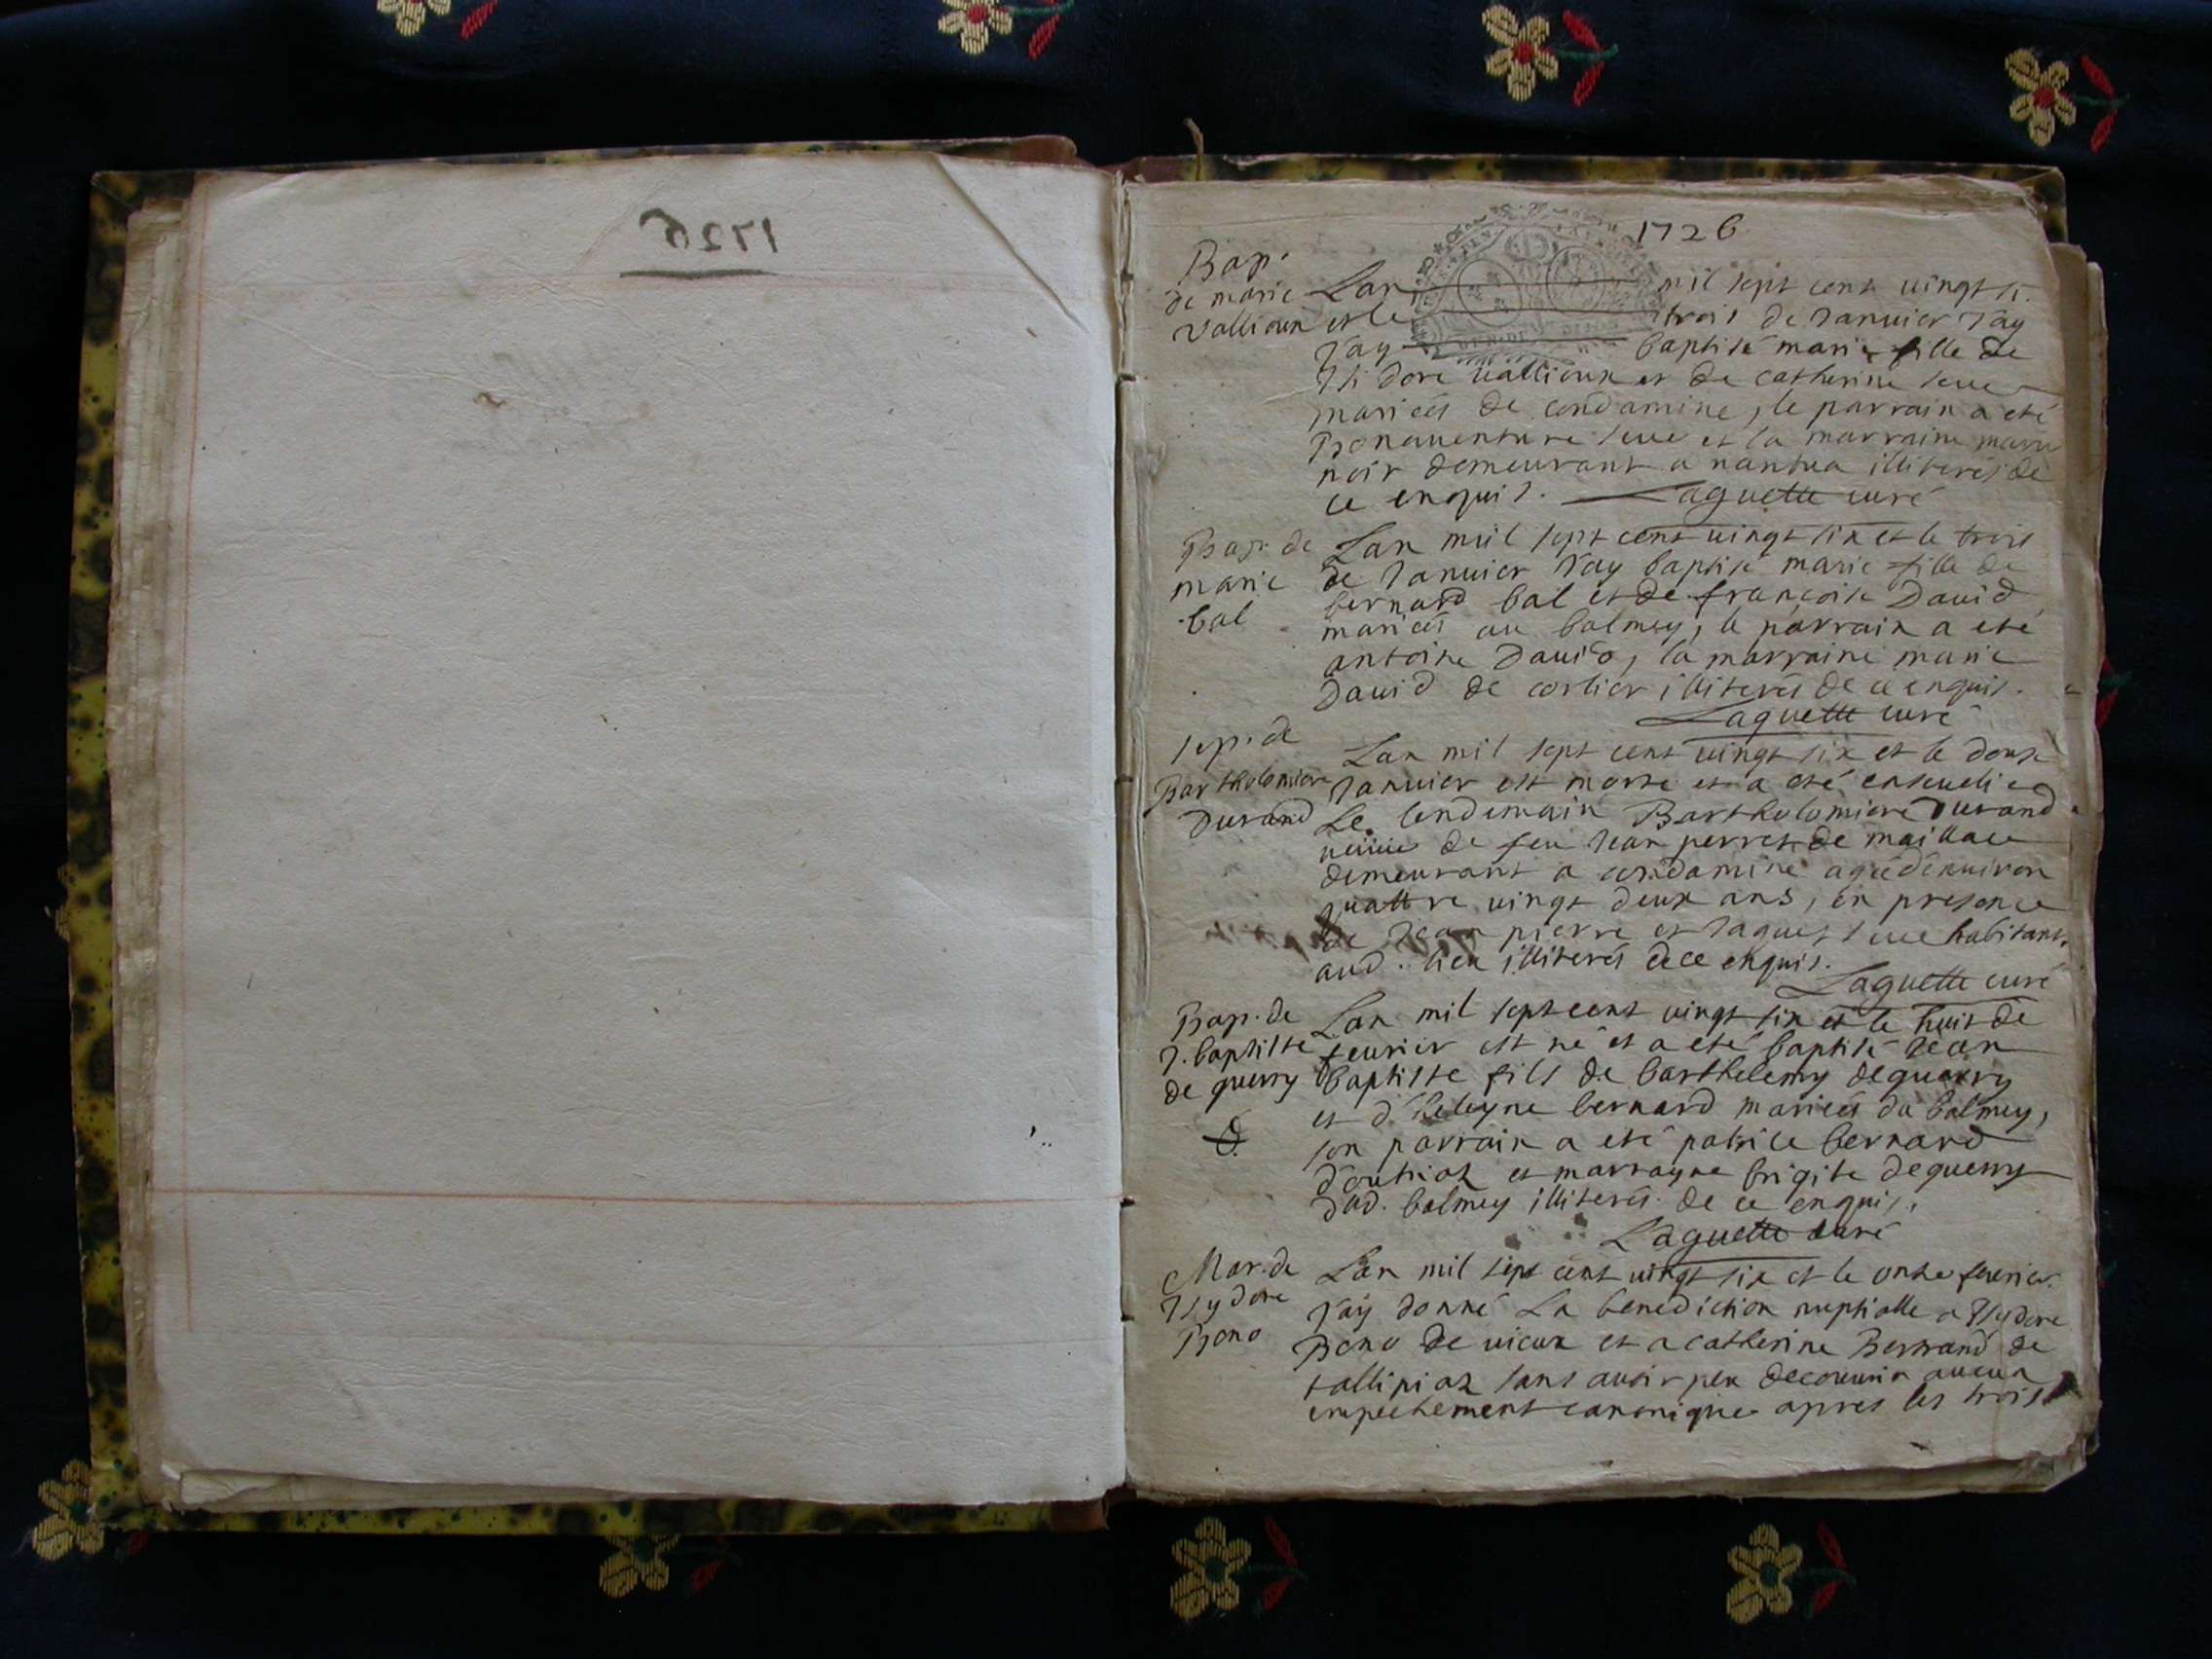 1726
1726
Bap.
de marie
vallioux
Lan mil sept cent uingt si.
et le trois de Januier J'ay
J'ay baptisé marie fille de
Isidore uallioux et de catherine seue
mariés de condamine, le parrain a eté
Bonauenture seue et la marraine marie
noir demeurant a nantua illiterés de
ce enquis. Laguette curé
Bap. de
marie
bal
Lan mil sept cent uingt six et le trois
de Januier J'ay baptisé marie fille de
bernard bal et de françoise Dauid
mariés au balmey, le parrain a eté
antoine Dauid, la marraine marie
Dauid de corlier illiterés de ce enquis.
Laguette curé
sep. de
Bartholomiere
Durand
Lan mil sept cent uingt six et le douze
Januier est morte et a eté enseuelie
Le lendemain Bartholomiere Durand
ueuue de feu Jean perret de maillac
demeurant a condamine agée denuiron
quattre uingt deux ans, en presence
de Jean pierre et Jaques seue habitans
aud. lieu illiterés de ce enquis.
Laguette curé
Bap. de
J. baptiste
de querry
Lan mil sept cent uingt six et le huit de
feurier est né et a eté baptisé Jean
baptiste fils de barthelemy dequerry
et d'heleyne bernard mariés du balmey,
son parrain a eté patrice bernard
d'outriaz et marrayne brigite dequerry
dud. balmey illiterés de ce enquis.
Laguette curé
Mar. de
Isydore
Bono
Lan mil sept cent uingt six et le onze feurier
J'ay donné La benediction nuptialle a Isydore
Bono de uieux et a catherine Bernand de
tallipiaz sans auoir peu decouurir aucun
empechement canonique apres les trois